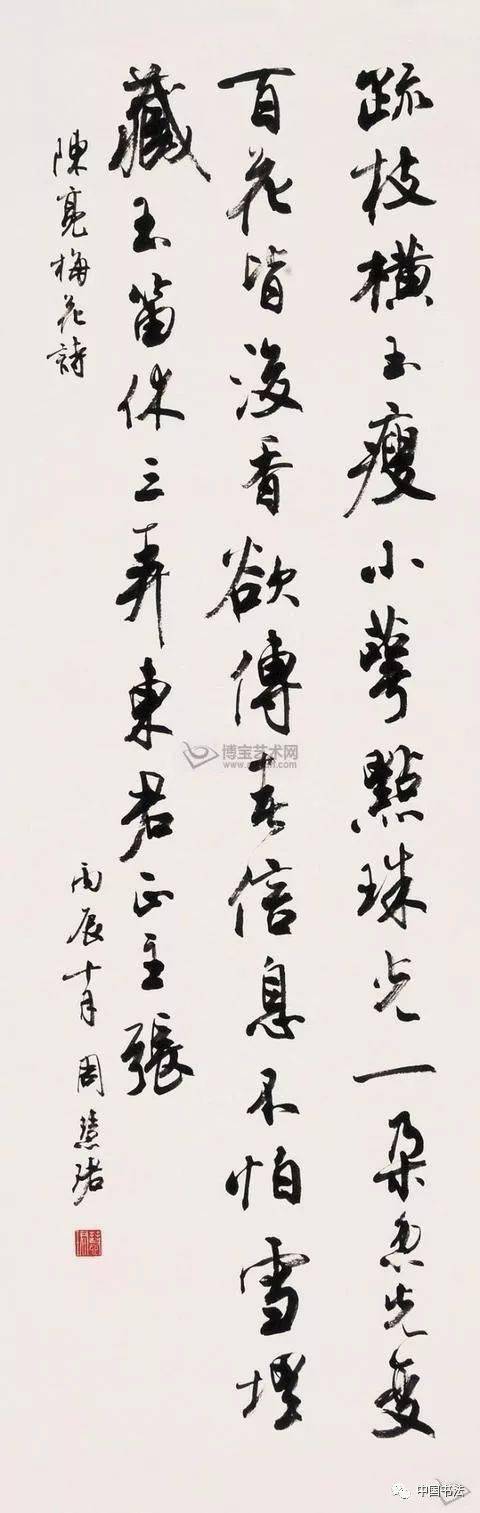 疏枝橫玉瘦小萼點珠光一朵忽先變
百花皆後香欲傳春信息不怕雪埋
藏玉笛休三弄東君正主張
陳亮梅花詩
丙辰十月周慧珺
博宝艺术网
中国书法